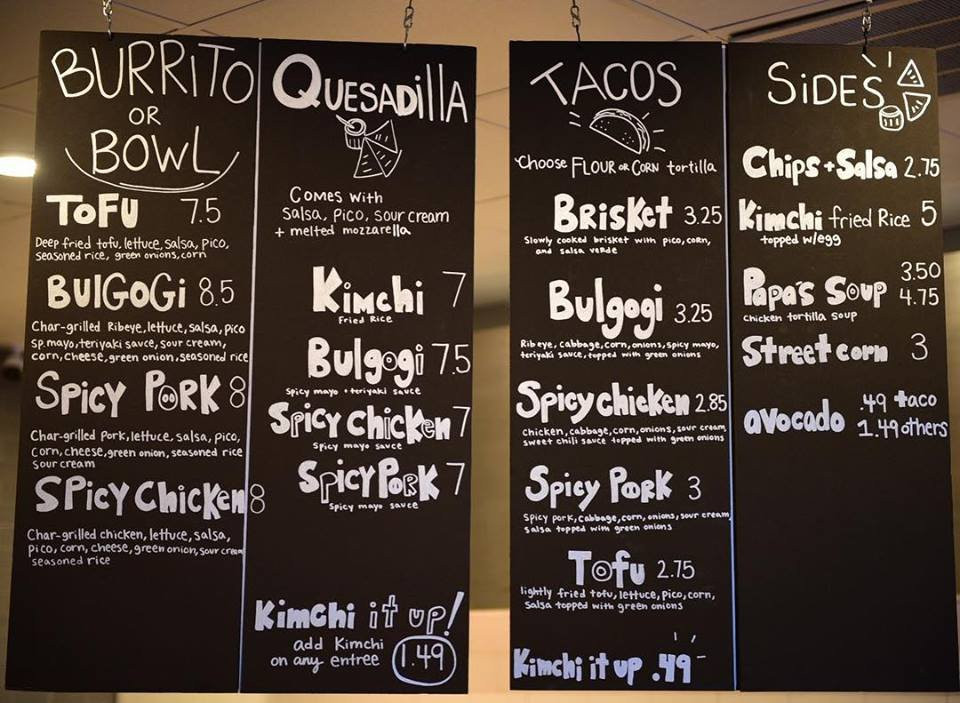 BURRITO
OR
BOWL
TOFU 7.5
Deep fried tofu, lettuce, salsa, pico,
seasoned rice, green onions, corn
BULGOGI 8.5
Char-grilled Ribeye, lettuce, salsa, pico
sp.mayo, teriyaki sauce, sour cream,
corn, cheese, green onion, seasoned rice
SPICY PORK 8
Char-grilled pork, lettuce, salsa, pico,
corn, cheese, green onion, seasoned rice
sour cream
SPICY CHICKEN 8
Char-grilled chicken, lettuce, salsa,
pico, corn, cheese, green onion, sour cream
seasoned rice
QUESADILLA
COMES WITH
SALSA, PICO, SOUR CREAM
+ melted mozzarella
Kimchi 7
Fried Rice
Bulgogi 7.5
Spicy mayo + teriyaki sauce
Spicy Chicken 7
Spicy mayo sauce
Spicy Pork 7
Spicy mayo sauce
Kimchi it up!
add Kimchi
on any entree 1.49
TACOS
Choose FLOUR OR CORN tortilla
BRISKET 3.25
Slowly cooked brisket with pico, corn,
and salsa verde
Bulgogi 3.25
Ribeye, cabbage, corn, onions, spicy mayo,
teriyaki sauce, topped with green onions
Spicy chicken 2.85
chicken, cabbage, corn, onions, sour cream
sweet chili sauce topped with green onions
Spicy Pork 3
Spicy pork, cabbage, corn, onions, sour cream,
salsa topped with green onions
Tofu 2.75
lightly fried tofu, lettuce, pico, corn,
salsa topped with green onions
Kimchi it up .49
SiDES
Chips + Salsa 2.75
Kimchi fried Rice 5
topped w/egg
3.50
Papa's Soup 4.75
chicken tortilla soup
Street corn 3
avocado .49 taco
1.49 others